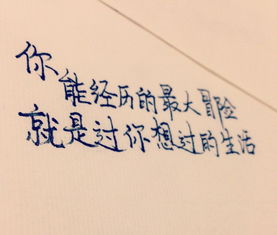 你
能经历的最大冒险
就是过你想过的生活